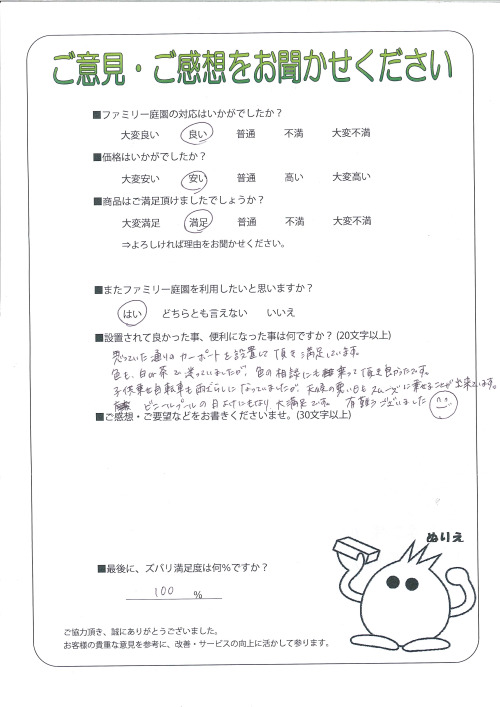 ご意見・ご感想をお聞かせください
■ファミリー庭園の対応はいかがでしたか？
大変良い 良い 普通 不満 大変不満
■価格はいかがでしたか？
大変安い 安い 普通 高い 大変高い
■商品はご満足頂けましたでしょうか？
大変満足 満足 普通 不満 大変不満
⇒よろしければ理由をお聞かせください。
■またファミリー庭園を利用したいと思いますか？
はい どちらとも言えない いいえ
■設置されて良かった事、便利になった事は何ですか？(20文字以上)
思っていた通りのカーポートを設置して頂き満足しています。
色も、白か茶で迷っていましたが、色の相談にも乗って頂き良かったです。
子供乗せ自転車も雨ざらしになっていましたが、天候の悪い日もスムーズに乗せることが出来ています。
ビニールプールの日よけにもなり大満足です。 有難うございました
■ご感想・ご要望などをお書きくださいませ。(30文字以上)
ぬりえ
■最後に、ズバリ満足度は何%ですか？
100 %
ご協力頂き、誠にありがとうございました。
お客様の貴重な意見を参考に、改善・サービスの向上に活かして参ります。